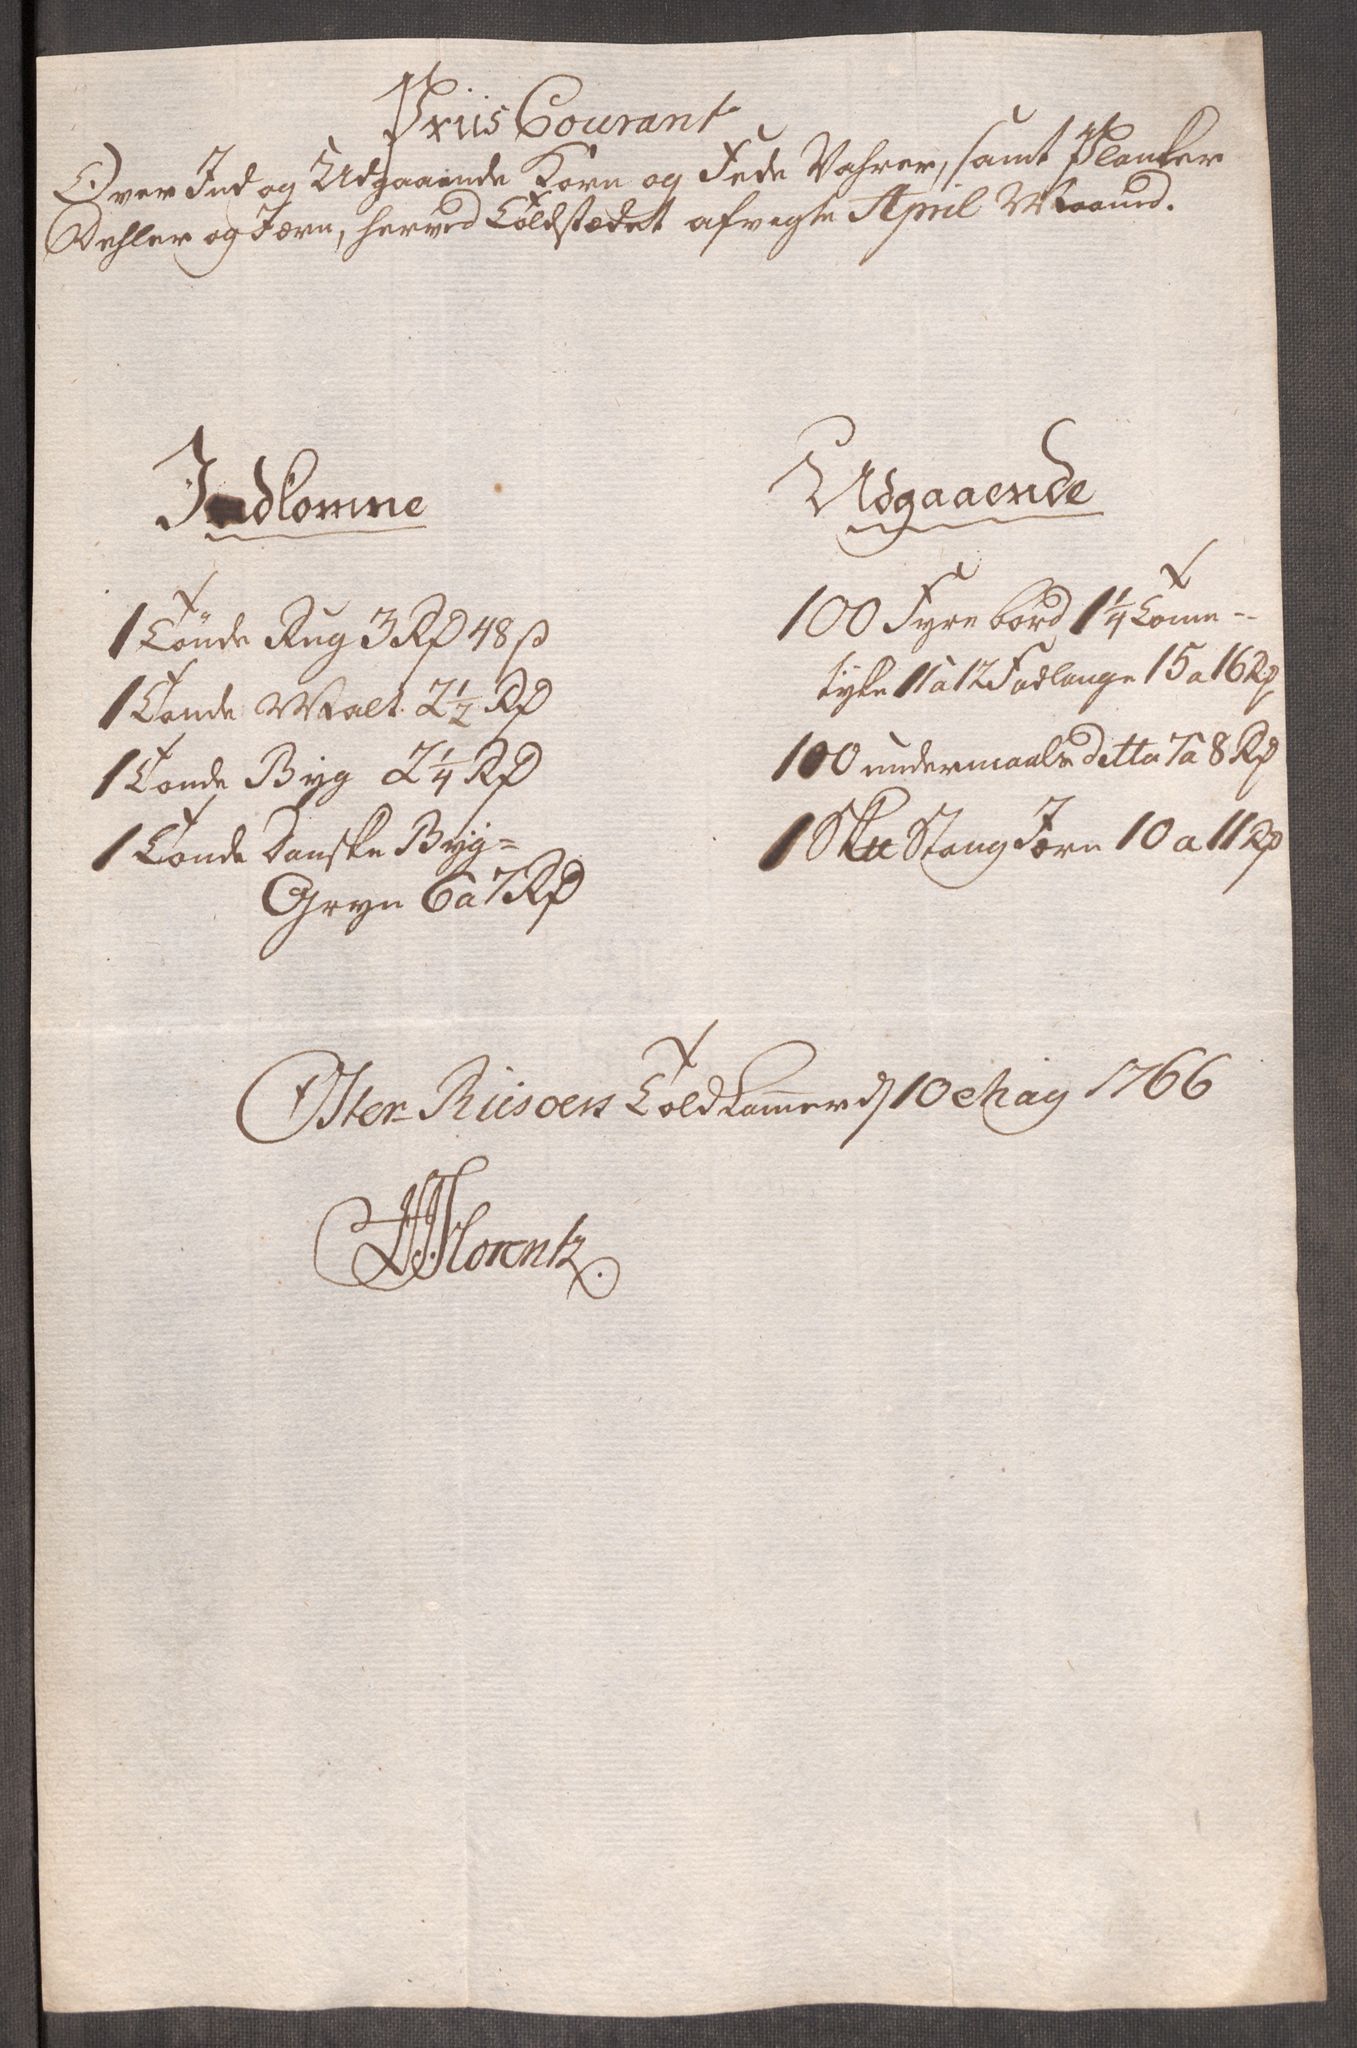 Priis Courant
Over Ind og Udgaaende Korn og Fede Vahrer, samt Planker
Dehler og Jærn, herved Toldstædet afvegte April Maaned.
Indkomne
1 Tönde Rug 3 Rd 48 ß
1 Tonde Malt 2 1/2 Rd
1 Tonde Byg 2 1/4 Rd
1 Tonde Danske Byg=
Gryn 6 a 7 Rd
Udgaaende
100 Fyre bord 1 1/4 Tomme
tyke 11 a 12 Fod lange 15 a 16 Rd
100 undermaals ditta 7 a 8 Rd
1 Sk℔ Stang Jærn 10 a 11 Rd
Öster Riisöers Toldkammer d 10 May 1766
Florentz.